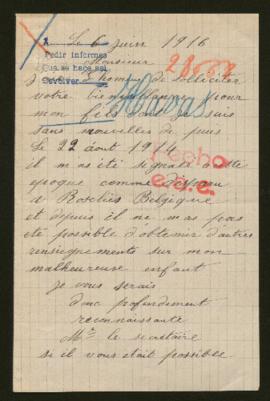 Le 6 juin 1916
A
Pedir informes
Que se hace así
Monsieur
j'ai l'honneur de solliciter
votre bienveillance pour
mon fils dont je suis
sans nouvelles de puis
Le 22 août 1914
il m as été signalé a cette
epoque comme disparu
a Roselies Belgique
et depuis il ne mas pas
eté possible d'obtenir d'autres
renseignements sur mon
malheureuse enfant
je vous serais
donc profondement
reconnaissante
Mr le secretaire
si il vous etait possible
Hecho